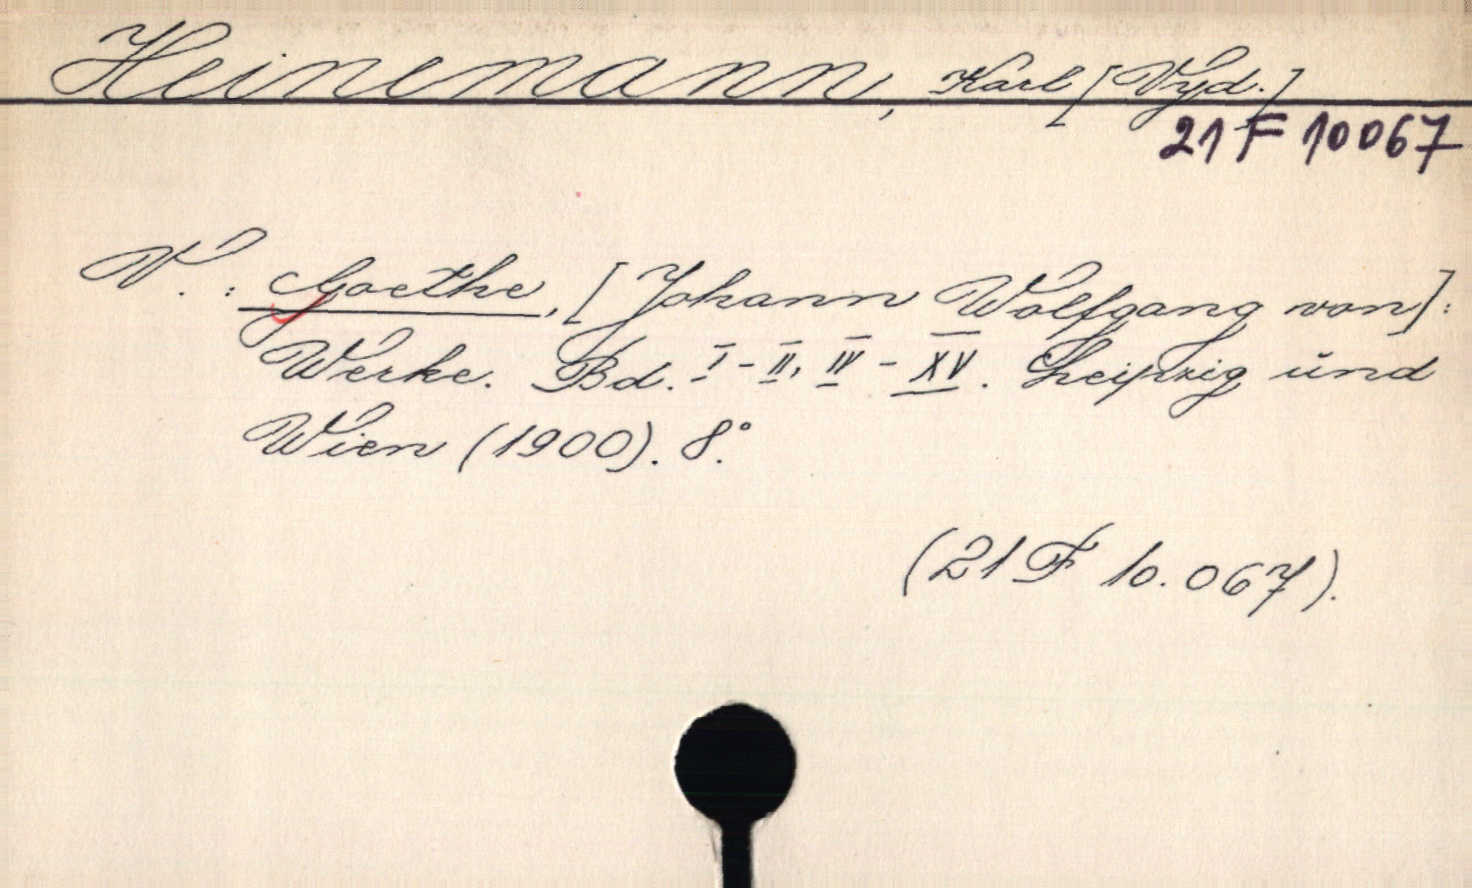 Heinemann, Karl [Vyd.]
21 F 10067
V. : Goethe, [Johann Wolfgang von]:
Werke. Bd. I - II, IV - XV. Leipzig und
Wien (1900). 8°.
(21 F 10.067).